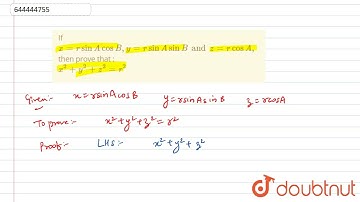 644444755
If
x = r sin A cos B, y = r sin A sin B and z = r cos A,
then prove that :
x² + y² + z² = r²
Given:- x = r sinA cosB y = r sinA sin B z = r cosA
To prove:- x² + y² + z² = r²
Proof:- LHS:- x² + y² + z²
doubtnut